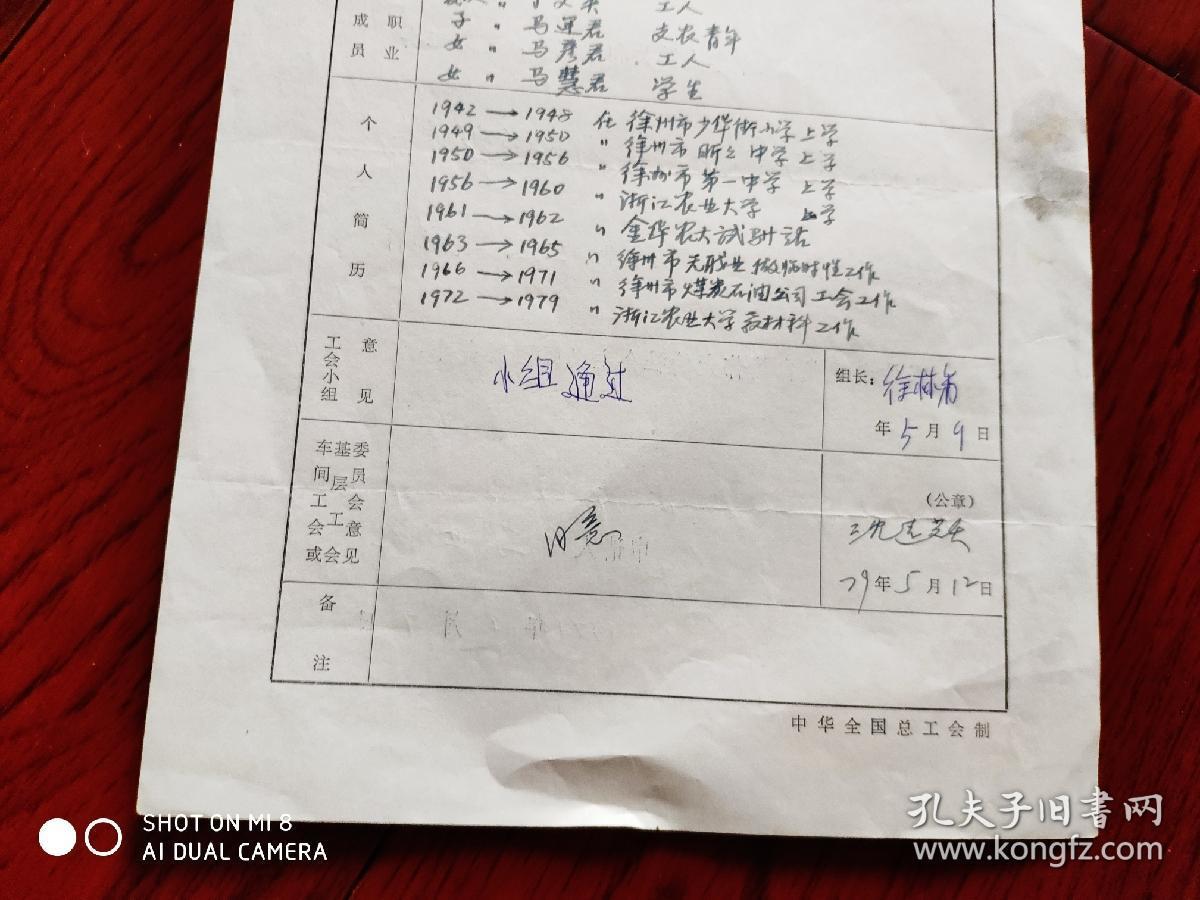 工人
成 职 子 〃 马运君 支农青年
员 业 女 〃 马彦君 工人
女 〃 马慧君 学生
个人简历
1942→1948 在 徐州市少华街小学上学
1949→1950 〃 徐州市昕之中学上学
1950→1956 〃 徐州市第一中学上学
1956→1960 〃 浙江农业大学 上学
1961→1962 〃 金华农大试验站
1963→1965 〃 徐州市无职业做临时性工作
1966→1971 〃 徐州市煤炭石油公司工会工作
1972→1979 〃 浙江农业大学教材料工作
工会小组意见
小组通过
组长:
年 5 月 9 日
车间工会或基层工会委员会意见
同意
(公章)
79年 5 月 12日
备注
中华全国总工会制
SHOT ON MI 8
AI DUAL CAMERA
孔夫子旧书网
www.kongfz.com